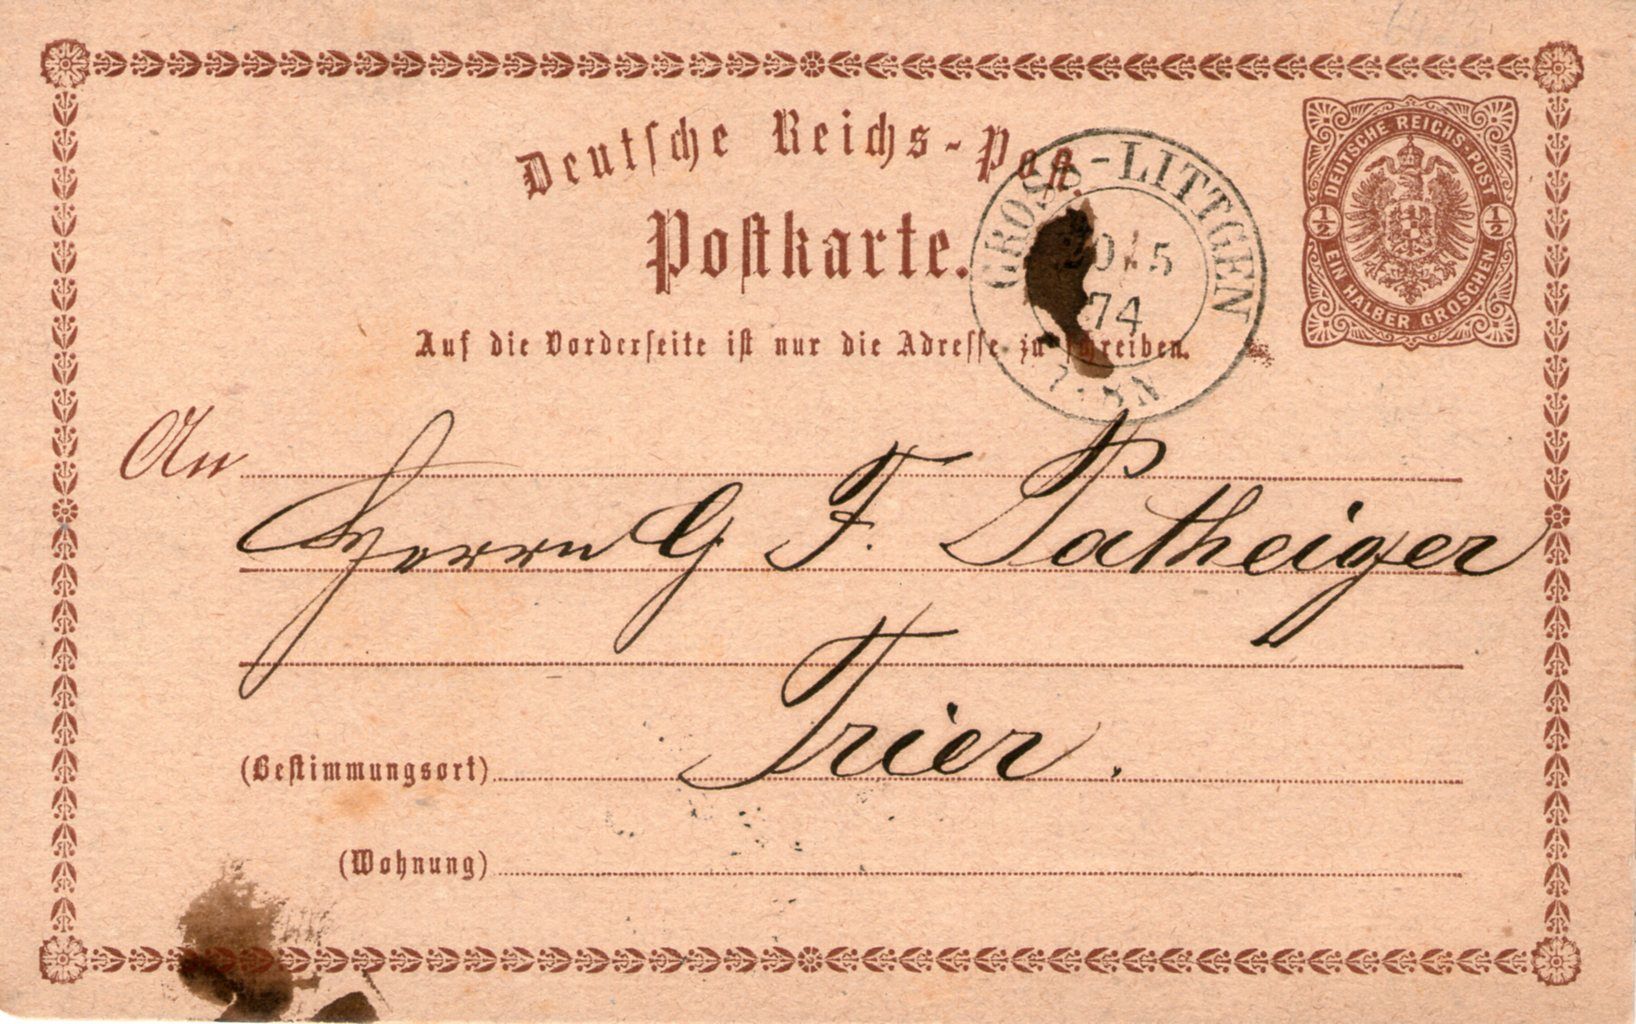 Deutsche Reichs-Post.
Postkarte.
Auf die Vorderseite ist nur die Adresse zu schreiben.
GROSS-LITTGEN
20/5
74
DEUTSCHE REICHS-POST
1/2 1/2
EIN HALBER GROSCHEN
An
Herrn G. F. Patheiger
Trier.
(Bestimmungsort)
(Wohnung)